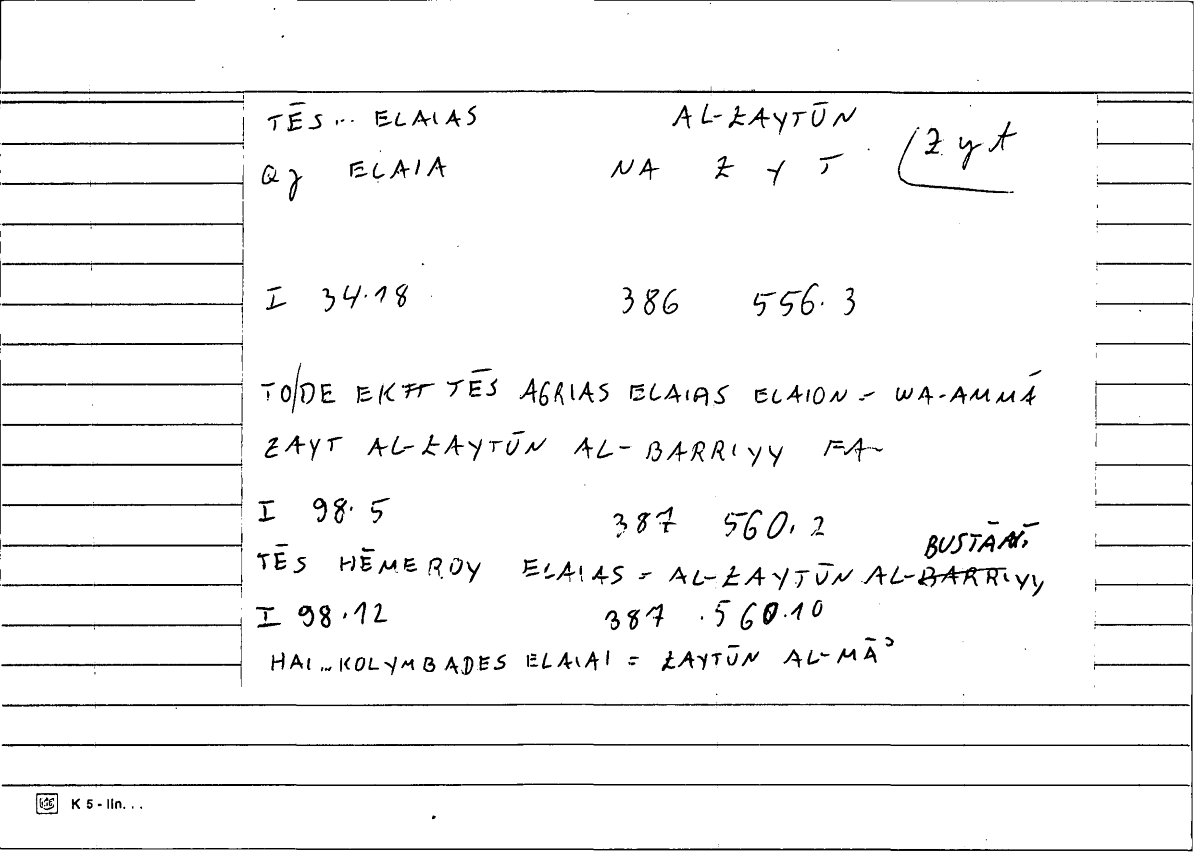 TĒS... ELAIAS AL-ZAYTŪN
QZ ELAIA NA Z Y T Zyt
I 34.18 386 556.3
TO/DE EK TĒS AGRIAS ELAIAS ELAION = WA-AMMĀ
ZAYT AL-ZAYTŪN AL-BARRIYY FA-
I 98.5 387 560.2
BUSTĀNI
TĒS HĒMEROY ELAIAS = AL-ZAYTŪN AL-BARRIYY
I 98.12 387 .560.10
HAI... KOLYMBADES ELAIAI = ZAYTŪN AL-MĀʾ
K 5 - lin. . .